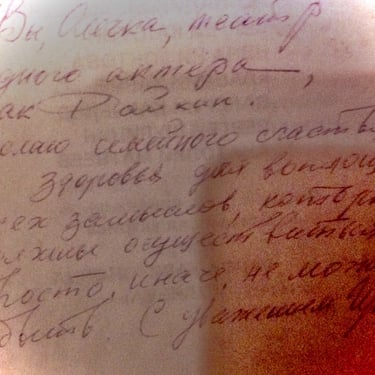 Вы, Олечка, театр
одного актера,
как Райкин.
желаю семейного счастья
Здоровья для воплощ
всех замыслов, которые
должны осуществиться
просто, иначе не може
быть. С уважением